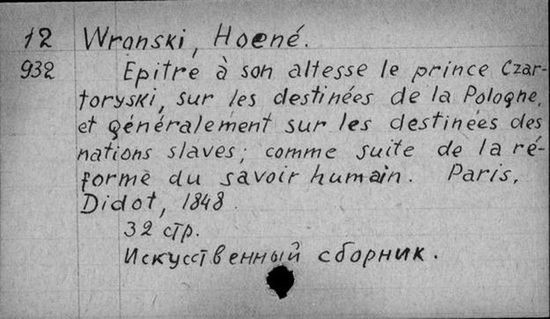 12 Wronski, Hoené.
932 Epitre à son altesse le prince Czar-
toryski, sur les destinées de la Pologne,
et généralement sur les destinées des
nations slaves; comme suite de la ré-
forme du savoir humain. Paris,
Didot, 1848.
32 стр.
Искусственный сборник.